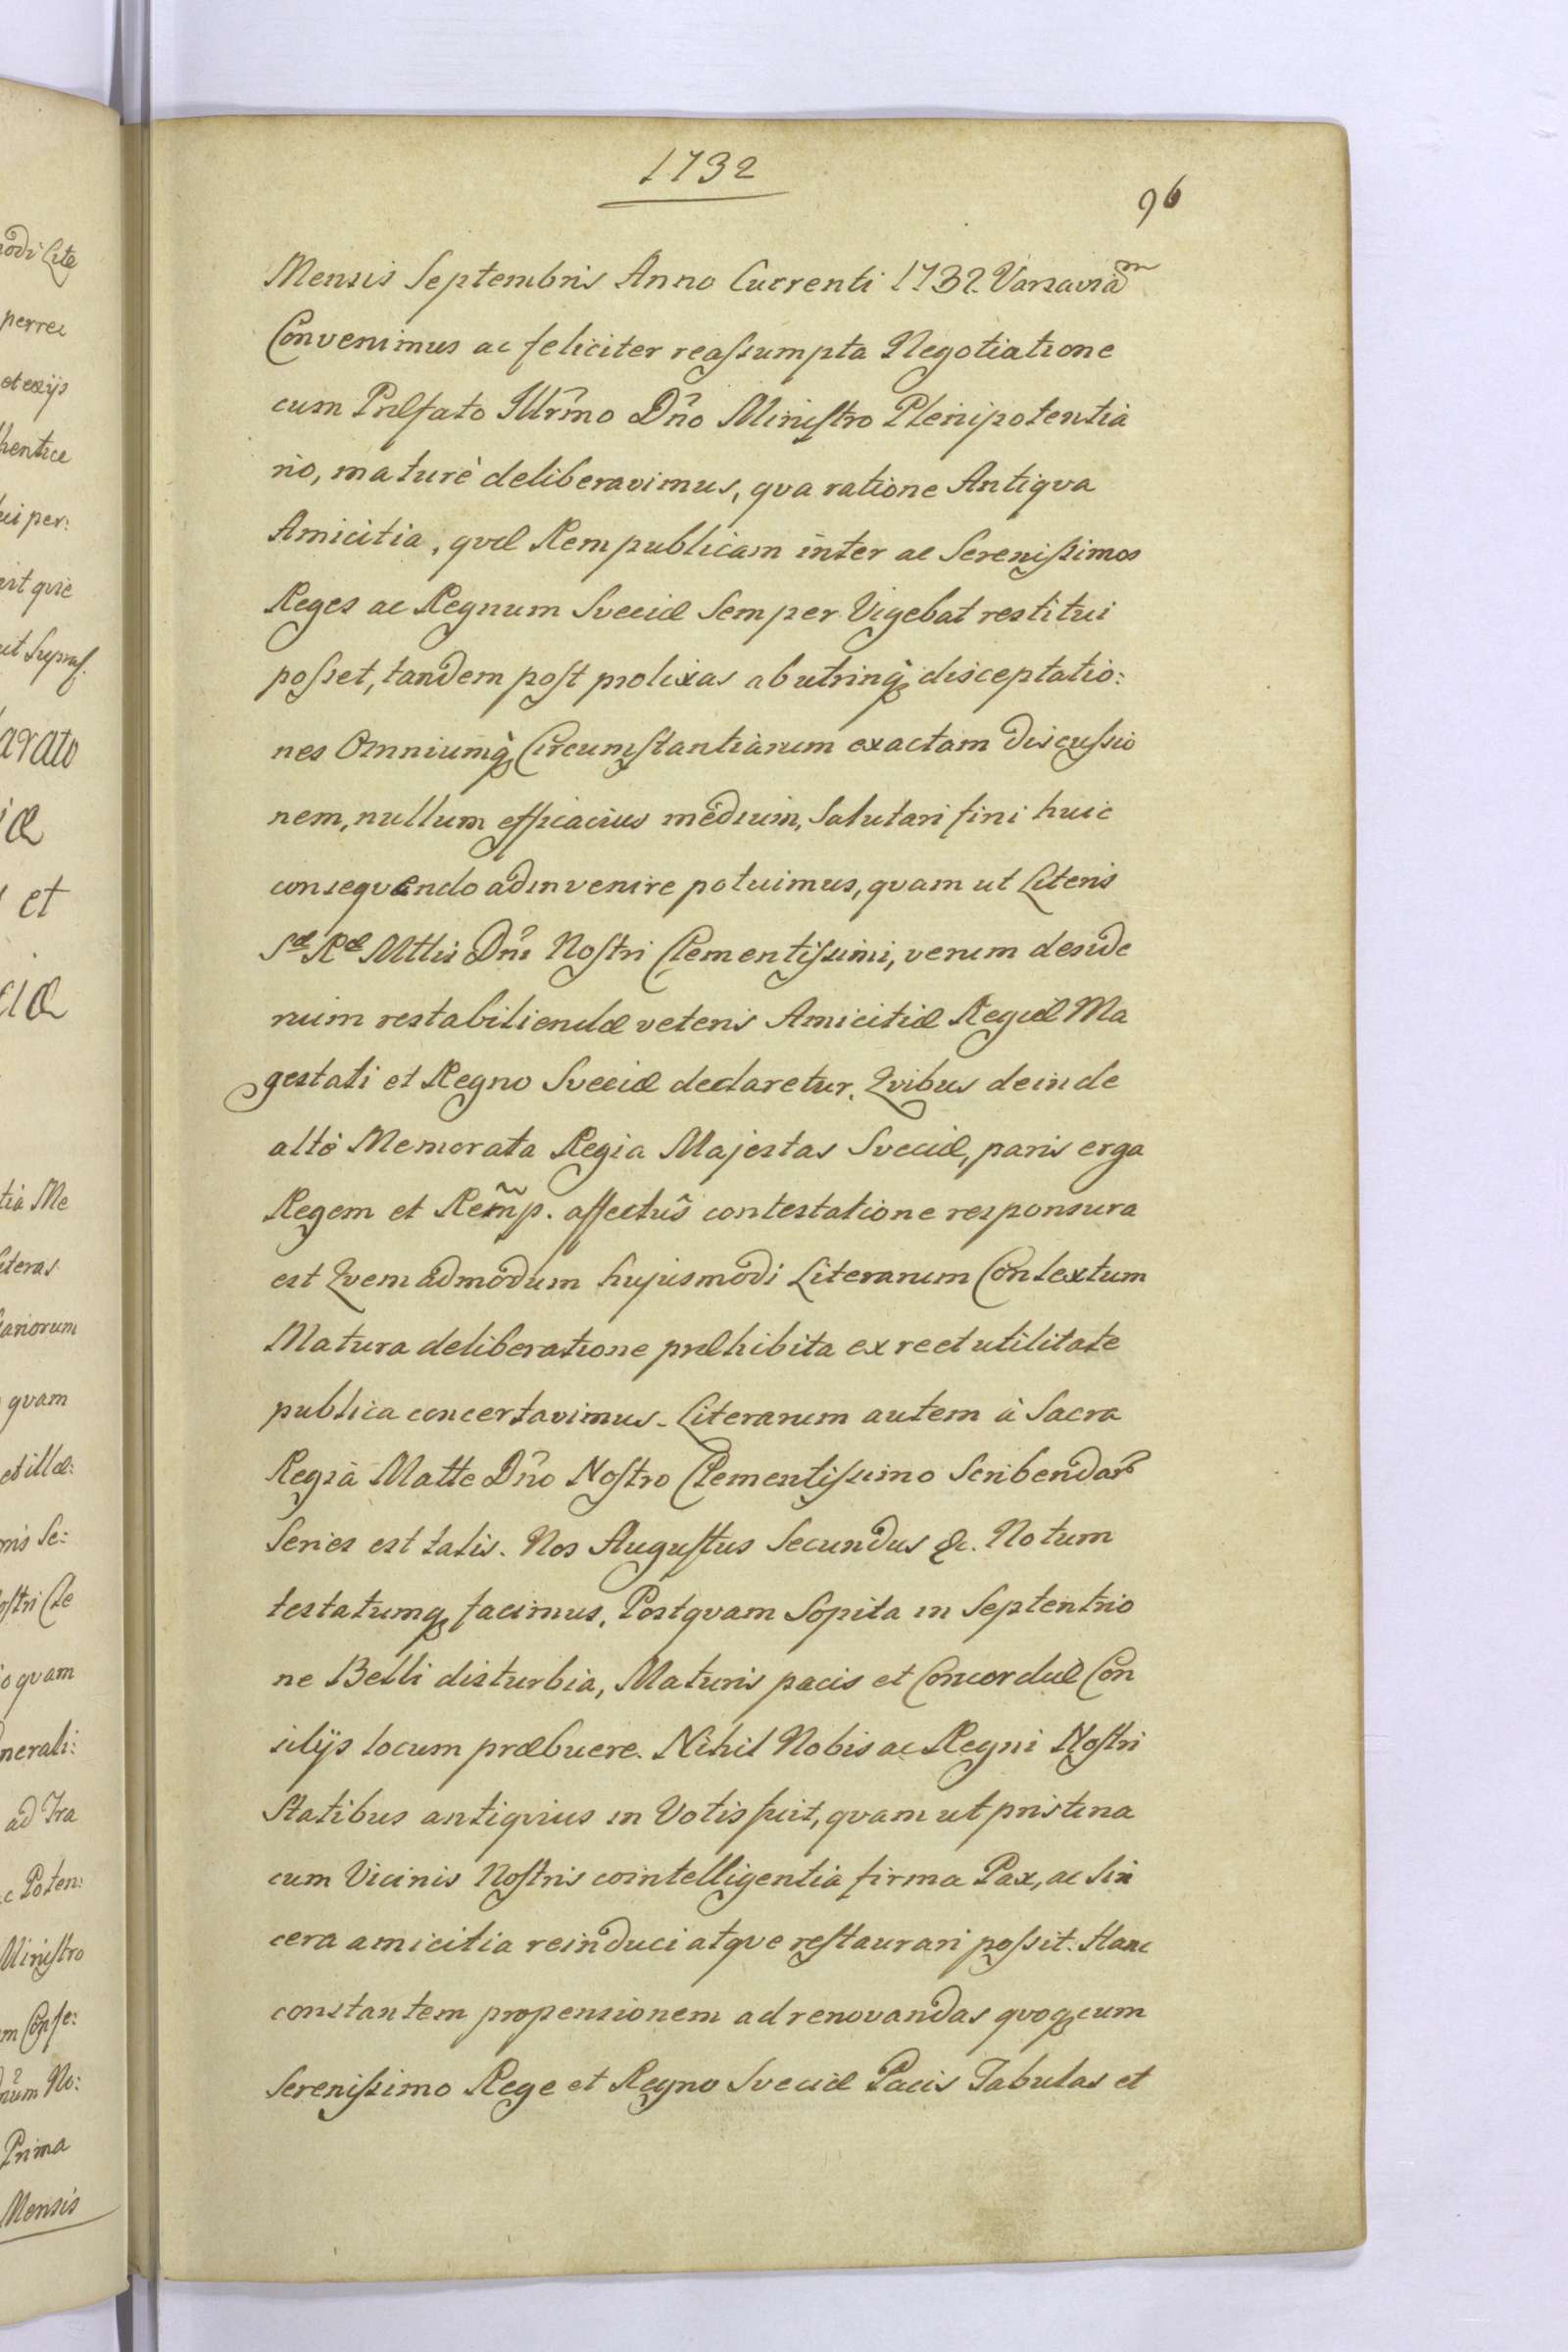 1732
96
Mensis Septembris Anno Currenti 1732. Varsaviã^m
Convenimus ac feliciter reassumpta Negotiatione
cum Præfato Illr̃mo Dño Ministro Plenipotentia
rio, maturè deliberavimus, qva ratione Antiqva
Amicitia, qvæ Rempublicam inter ac Serenissimos
Reges ac Regnum Sveciæ Semper Vigebat restitui
posset, tandem post prolixas ab utrinq̃ disceptatio:
nes Omniumq̃ Circumstantiarum exactam discussio
nem, nullum efficacius medium, Salutari fini huic
conseqvendo adinvenire potuimus, qvam ut Literis
Sæ Ræ Mttis Dñi Nostri Clementissimi, verum deside
rium restabiliendæ veteris Amicitiæ Regiæ Ma
gestati et Regno Sveciæ declaretur. Qvibus deinde
altè Memorata Regia Majestas Sveciæ, paris erga
Regem et Rem̃p. affectûs contestatione responsura
est Qvemadmodum hujusmodi Literarum Contextum
Matura deliberatione præhibita ex re et utilitate
publica concertavimus. Literarum autem à Sacra
Regiâ Matte Dño Nostro Clementissimo Scribendar̃
Series est talis. Nos Augustus Secundus &c. Notum
testatumq facimus, Postqvam Sopita in Septentrio
ne Belli disturbia, Maturis pacis et Concordiæ Con
silijs locum præbuere. Nihil Nobis ac Regni Nostri
Statibus antiqvius in Votis fuit, qvam ut pristina
cum Vicinis Nostris cointelligentia firma Pax, ac Sin
cera amicitia reinduci atqve restaurari possit. Hanc
constantem propensionem ad renovandas qvoq cum
Serenissimo Rege et Regno Sveciæ Pacis Tabulas et